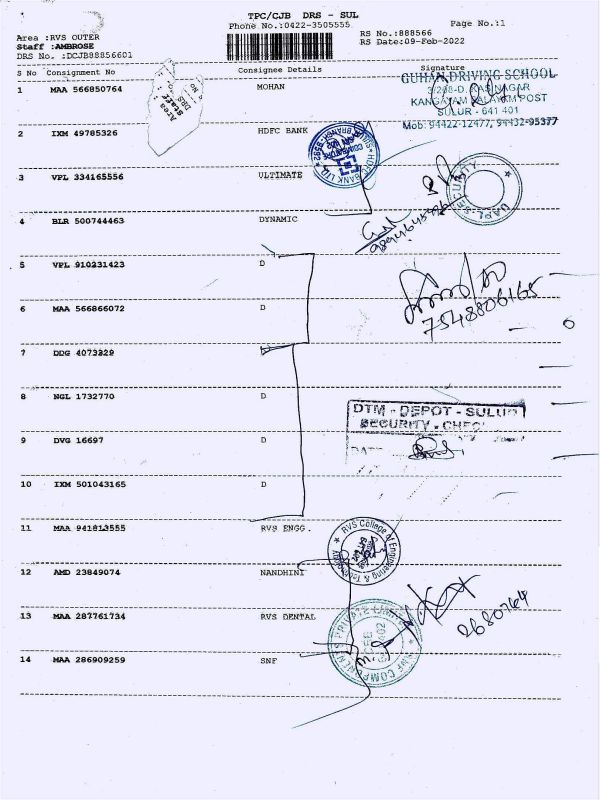 TPC/CJB DRS - SUL
Phone No.:0422-3505555
Page No.:1
RS No.:888566
RS Date:09-Feb-2022
Area :RVS OUTER
Staff :AMBROSE
DRS No. :DCJB88856601
S No Consignment No Consignee Details Signature
1 MAA 566850764 MOHAN
GUHAN DRIVING SCHOOL
KANGAYAM PALAYAM POST
SULUR - 641 401
Mob: 94422-12477, 94432-95377
2 IXM 49785326 HDFC BANK
3 VPL 334165556 ULTIMATE
UAPL-SECURITY
4 BLR 500744463 DYNAMIC
5 VPL 910231423 D
6 MAA 566866072 D
7548806165
7 DDG 4073329
8 NGL 1732770 D
DTM - DEPOT - SULUR
SECURITY - CHEC
9 DVG 16697 D
DATE
10 IXM 501043165 D
11 MAA 941813555 RVS ENGG.
RVS College of Engineering & Technology
12 AMD 23849074 NANDHINI
13 MAA 287761734 RVS DENTAL
2680764
14 MAA 286909259 SNF